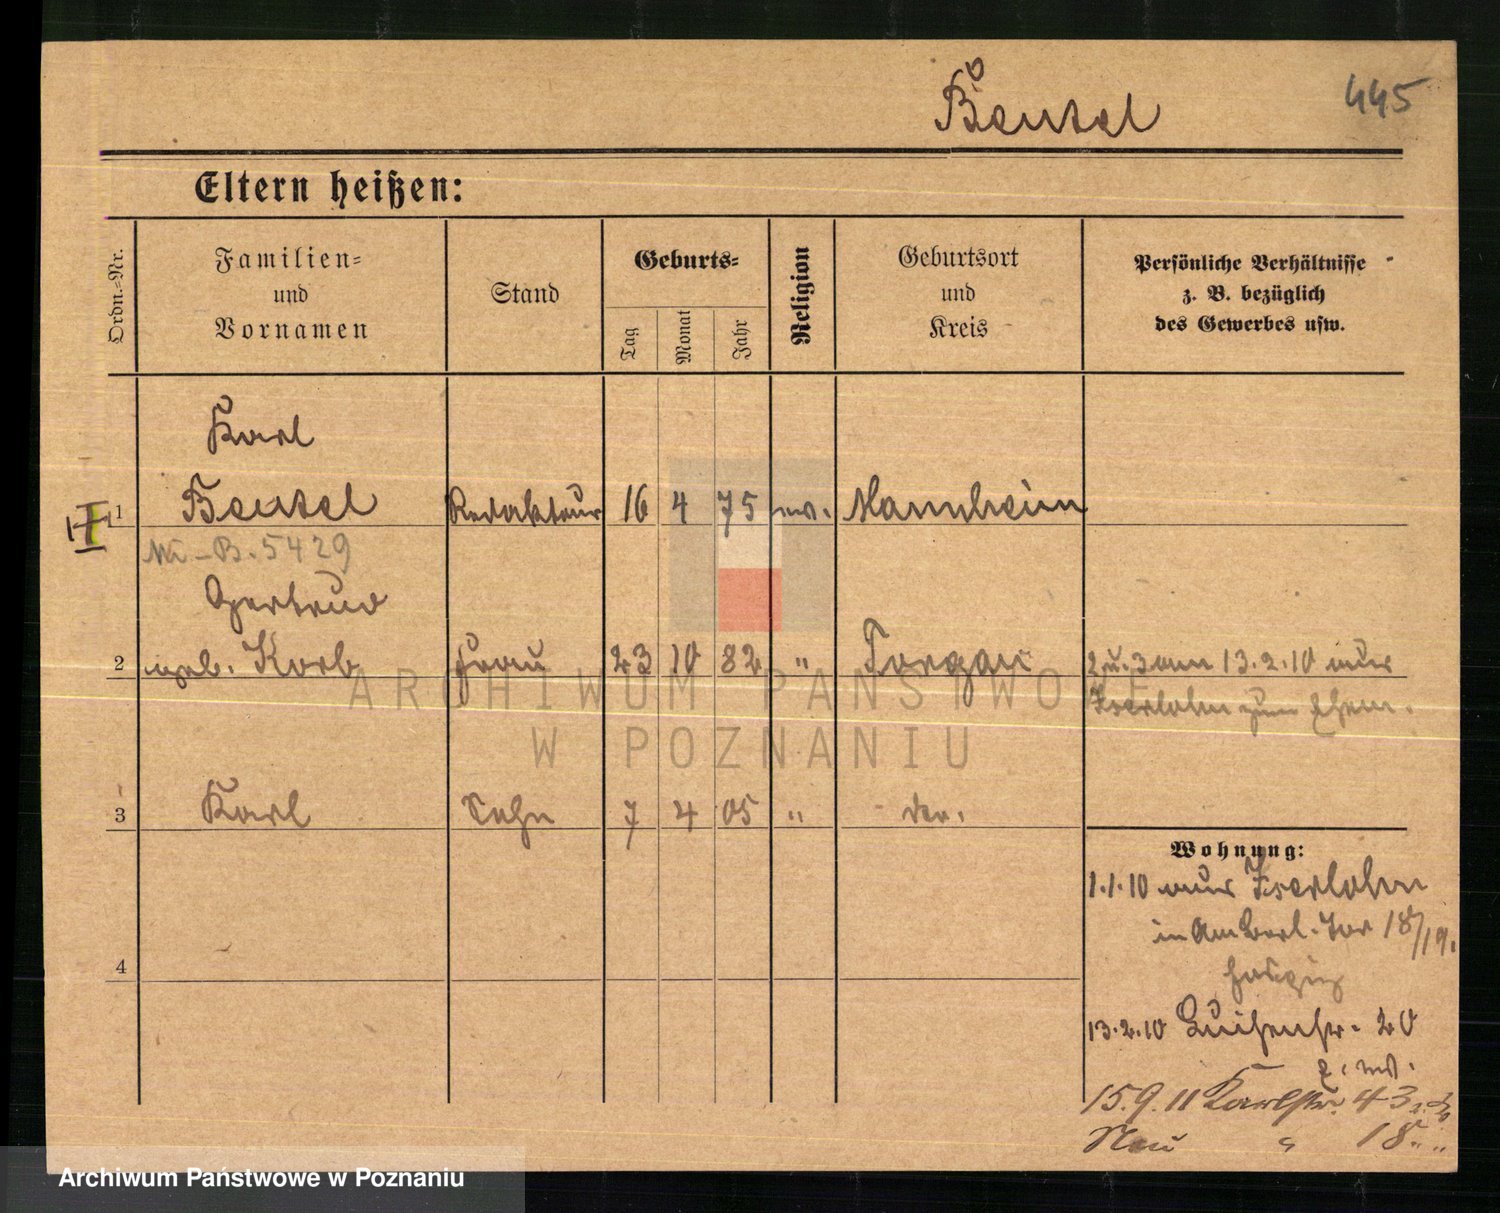 445
Beutel
Eltern heißen:
Ordn.-Nr.
Familien-
und
Vornamen
Stand
Geburts-
Tag
Monat
Jahr
Religion
Geburtsort
und
Kreis
Persönliche Verhältnisse
z. B. bezüglich
des Gewerbes usw.
Karl
1 Beutel Redakteur 16 4 75 Mannheim
B. 5429
Gertrud
2 geb. Korb Frau 23 10 82 " Torgau 2 u. 3 am 13.2.10 aus
Iserlohn zum Ehem.
3 Karl Sohn 7 4 05 "
4
Wohnung:
1.1.10 aus Iserlohn
in Am Berl. Tor 18/19.
13.2.10 Luisenstr. 20
15.9.11 Karlstr. 43
Neu " 18
ARCHIWUM PAŃSTWOWE
W POZNANIU
Archiwum Państwowe w Poznaniu